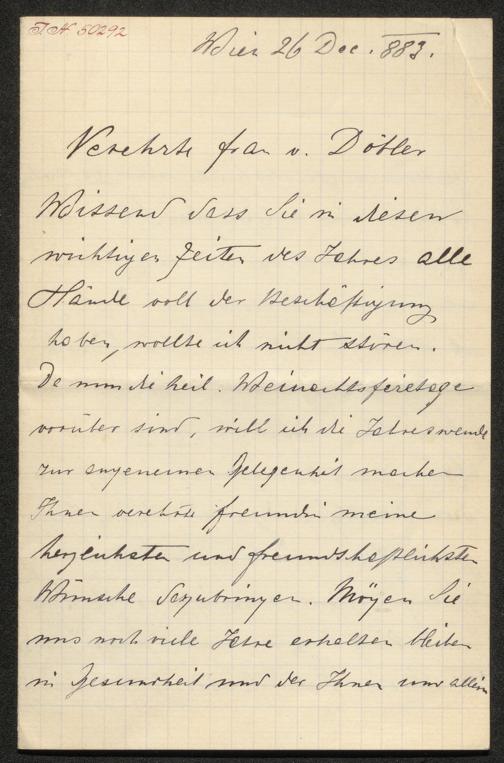 I N 50292
Wien 26 Dec. 883.
Verehrte frau v. Döbler
Wissend dass Sie in diesen
wichtigen Zeiten des Jahres alle
Hände voll der Beschäftigung
haben, wollte ich nicht stören.
Da nun die heil. Weinachtsfeietage
vorüber sind, will ich die Jahreswende
zur angenemen Gelegenheit machen
Ihnen verehrte freundin meine
herzlichsten und freundshaftlichsten
Wünsche darzubringen. Mögen Sie
uns noch viele Jahre erhalten bleiben
in Gesundheit und der Ihnen nur allein